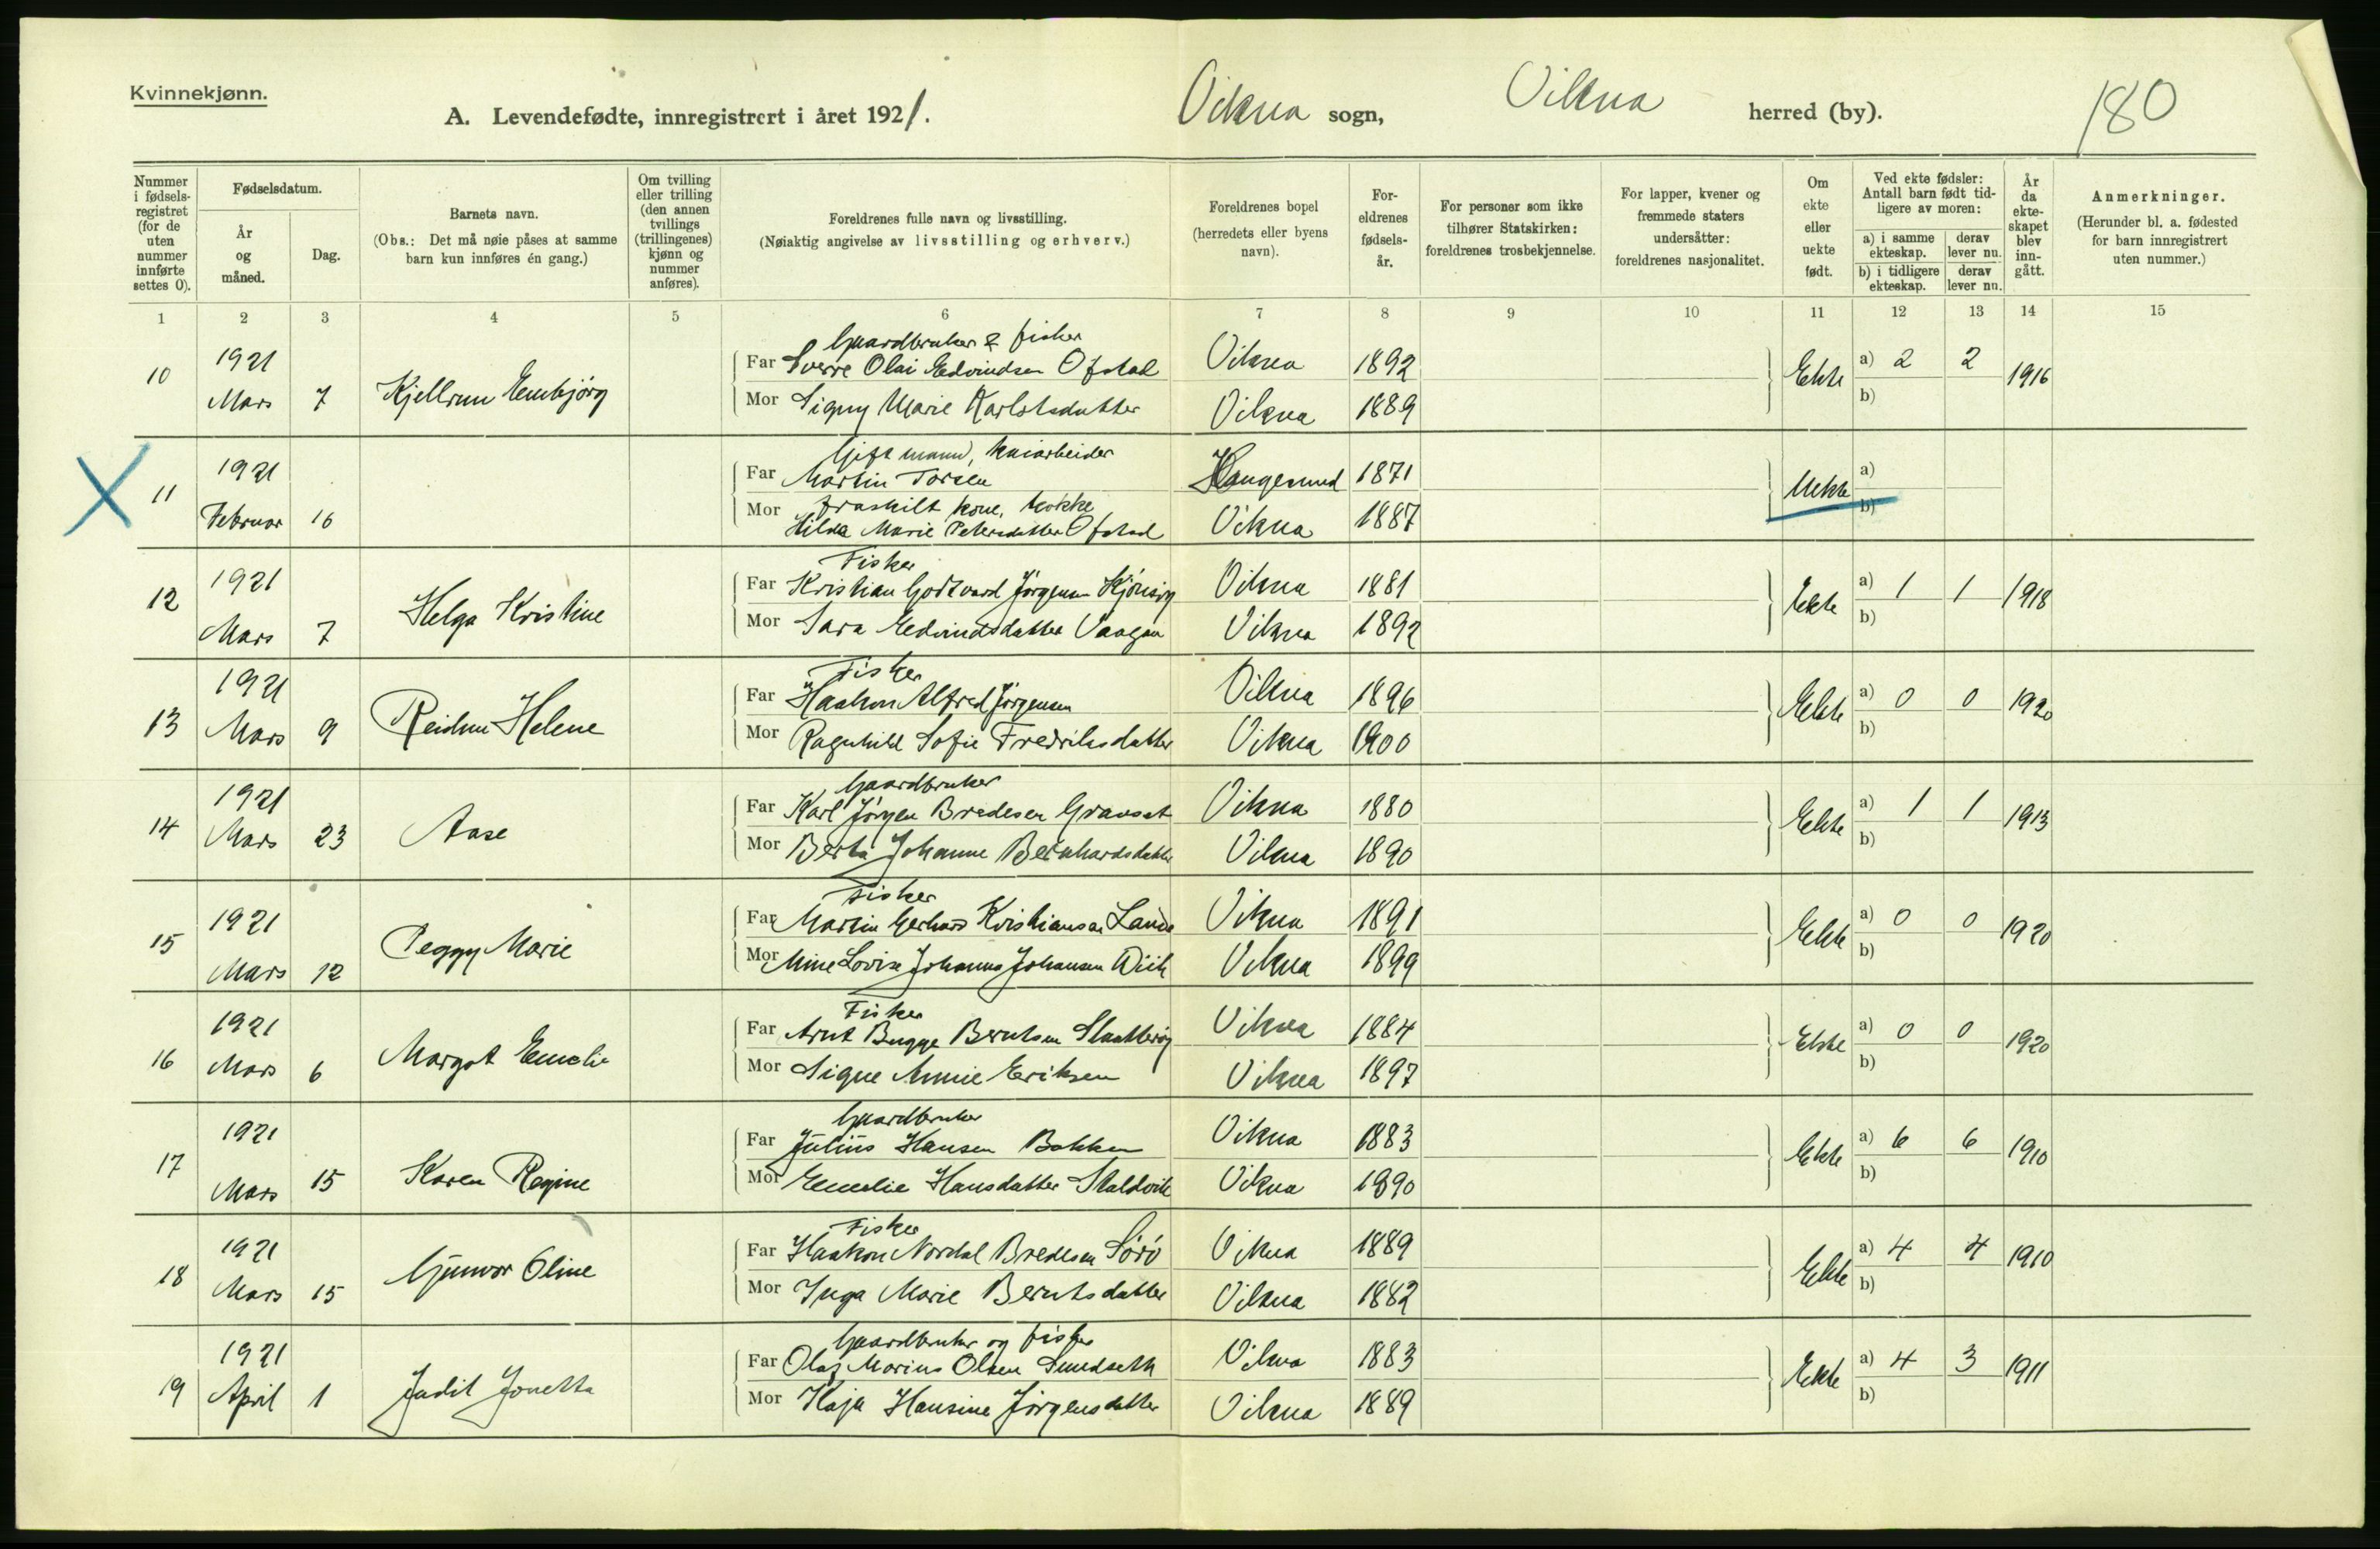 Kvinnekjønn.
A. Levendefødte, innregistrert i året 1921.
Vikna sogn, Vikna herred (by).
180
Nummer i fødsels-registret (for de uten nummer innførte settes 0).
Fødselsdatum.
År og måned.
Dag.
Barnets navn.
(Obs.: Det må nøie påses at samme barn kun innføres én gang.)
Om tvilling eller trilling (den annen tvillings (trillingenes) kjønn og nummer anføres).
Foreldrenes fulle navn og livsstilling.
(Nøiaktig angivelse av livsstilling og erhverv.)
Foreldrenes bopel (herredets eller byens navn).
For-eldrenes fødsels-år.
For personer som ikke tilhører Statskirken: foreldrenes trosbekjennelse.
For lapper, kvener og fremmede staters undersåtter: foreldrenes nasjonalitet.
Om ekte eller uekte født.
Ved ekte fødsler: Antall barn født tid-ligere av moren:
a) i samme ekteskap. derav lever nu.
b) i tidligere ekteskap. derav lever nu.
År da ekte-skapet blev inn-gått.
Anmerkninger.
(Herunder bl. a. fødested for barn innregistrert uten nummer.)
1 2 3 4 5 6 7 8 9 10 11 12 13 14 15
Gaardbruker & fisker
10 1921 Far Sverre Olai Edvindsen Ofstad Vikna 1892 Ekte a) 2 2 1916
Mars 7 Kjellrun Embjørg Mor Signy Marie Karlsdatter Vikna 1889 b)
Gift mann, kaiarbeider
11 1921 Far Martin Torsen Haugesund 1871 Uekte a)
fraskilt kone, kokke
Februar 16 Mor Hilda Marie Petersdatter Ofstad Vikna 1887 b)
Fisker
12 1921 Far Kristian Godtvard Jørgensen Vikna 1881 Ekte a) 1 1 1918
Mars 7 Helga Kristine Mor Sara Edvindsdatter Vaagan Vikna 1892 b)
Fisker
13 1921 Far Haakon Alfred Jørgensen Vikna 1896 Ekte a) 0 0 1920
Mars 9 Reidun Helene Mor Ragnhild Sofie Fredriksdatter Vikna 1900 b)
Gaardbruker
14 1921 Far Karl Jörgen Bredesen Gransat Vikna 1880 Ekte a) 1 1 1913
Mars 23 Aase Mor Berta Johanne Bernhardsdatter Vikna 1890 b)
Fisker
15 1921 Far Martin Gerhard Kristiansen Lande Vikna 1891 Ekte a) 0 0 1920
Mars 12 Peggy Marie Mor Mine Lovise Johanna Johansen Wiik Vikna 1899 b)
Fisker
16 1921 Far Arnt Bugge Berntsen Vikna 1884 Ekte a) 0 0 1920
Mars 6 Margot Emelie Mor Signe Annie Eriksen Vikna 1897 b)
Gaardbruker
17 1921 Far Julius Hansen Bakken Vikna 1883 Ekte a) 6 6 1910
Mars 15 Karen Regine Mor Emelie Hansdatter Staldvik Vikna 1890 b)
Fisker
18 1921 Far Haakon Nordal Bredesen Sörö Vikna 1889 Ekte a) 4 4 1910
Mars 15 Gunvor Oline Mor Inga Marie Berntsdatter Vikna 1882 b)
Gaardbruker og fisker
19 1921 Far Olaf Marius Olsen Sundseth Vikna 1883 Ekte a) 4 3 1911
April 1 Judit Jonetta Mor Kaja Hansine Jörgensdatter Vikna 1889 b)